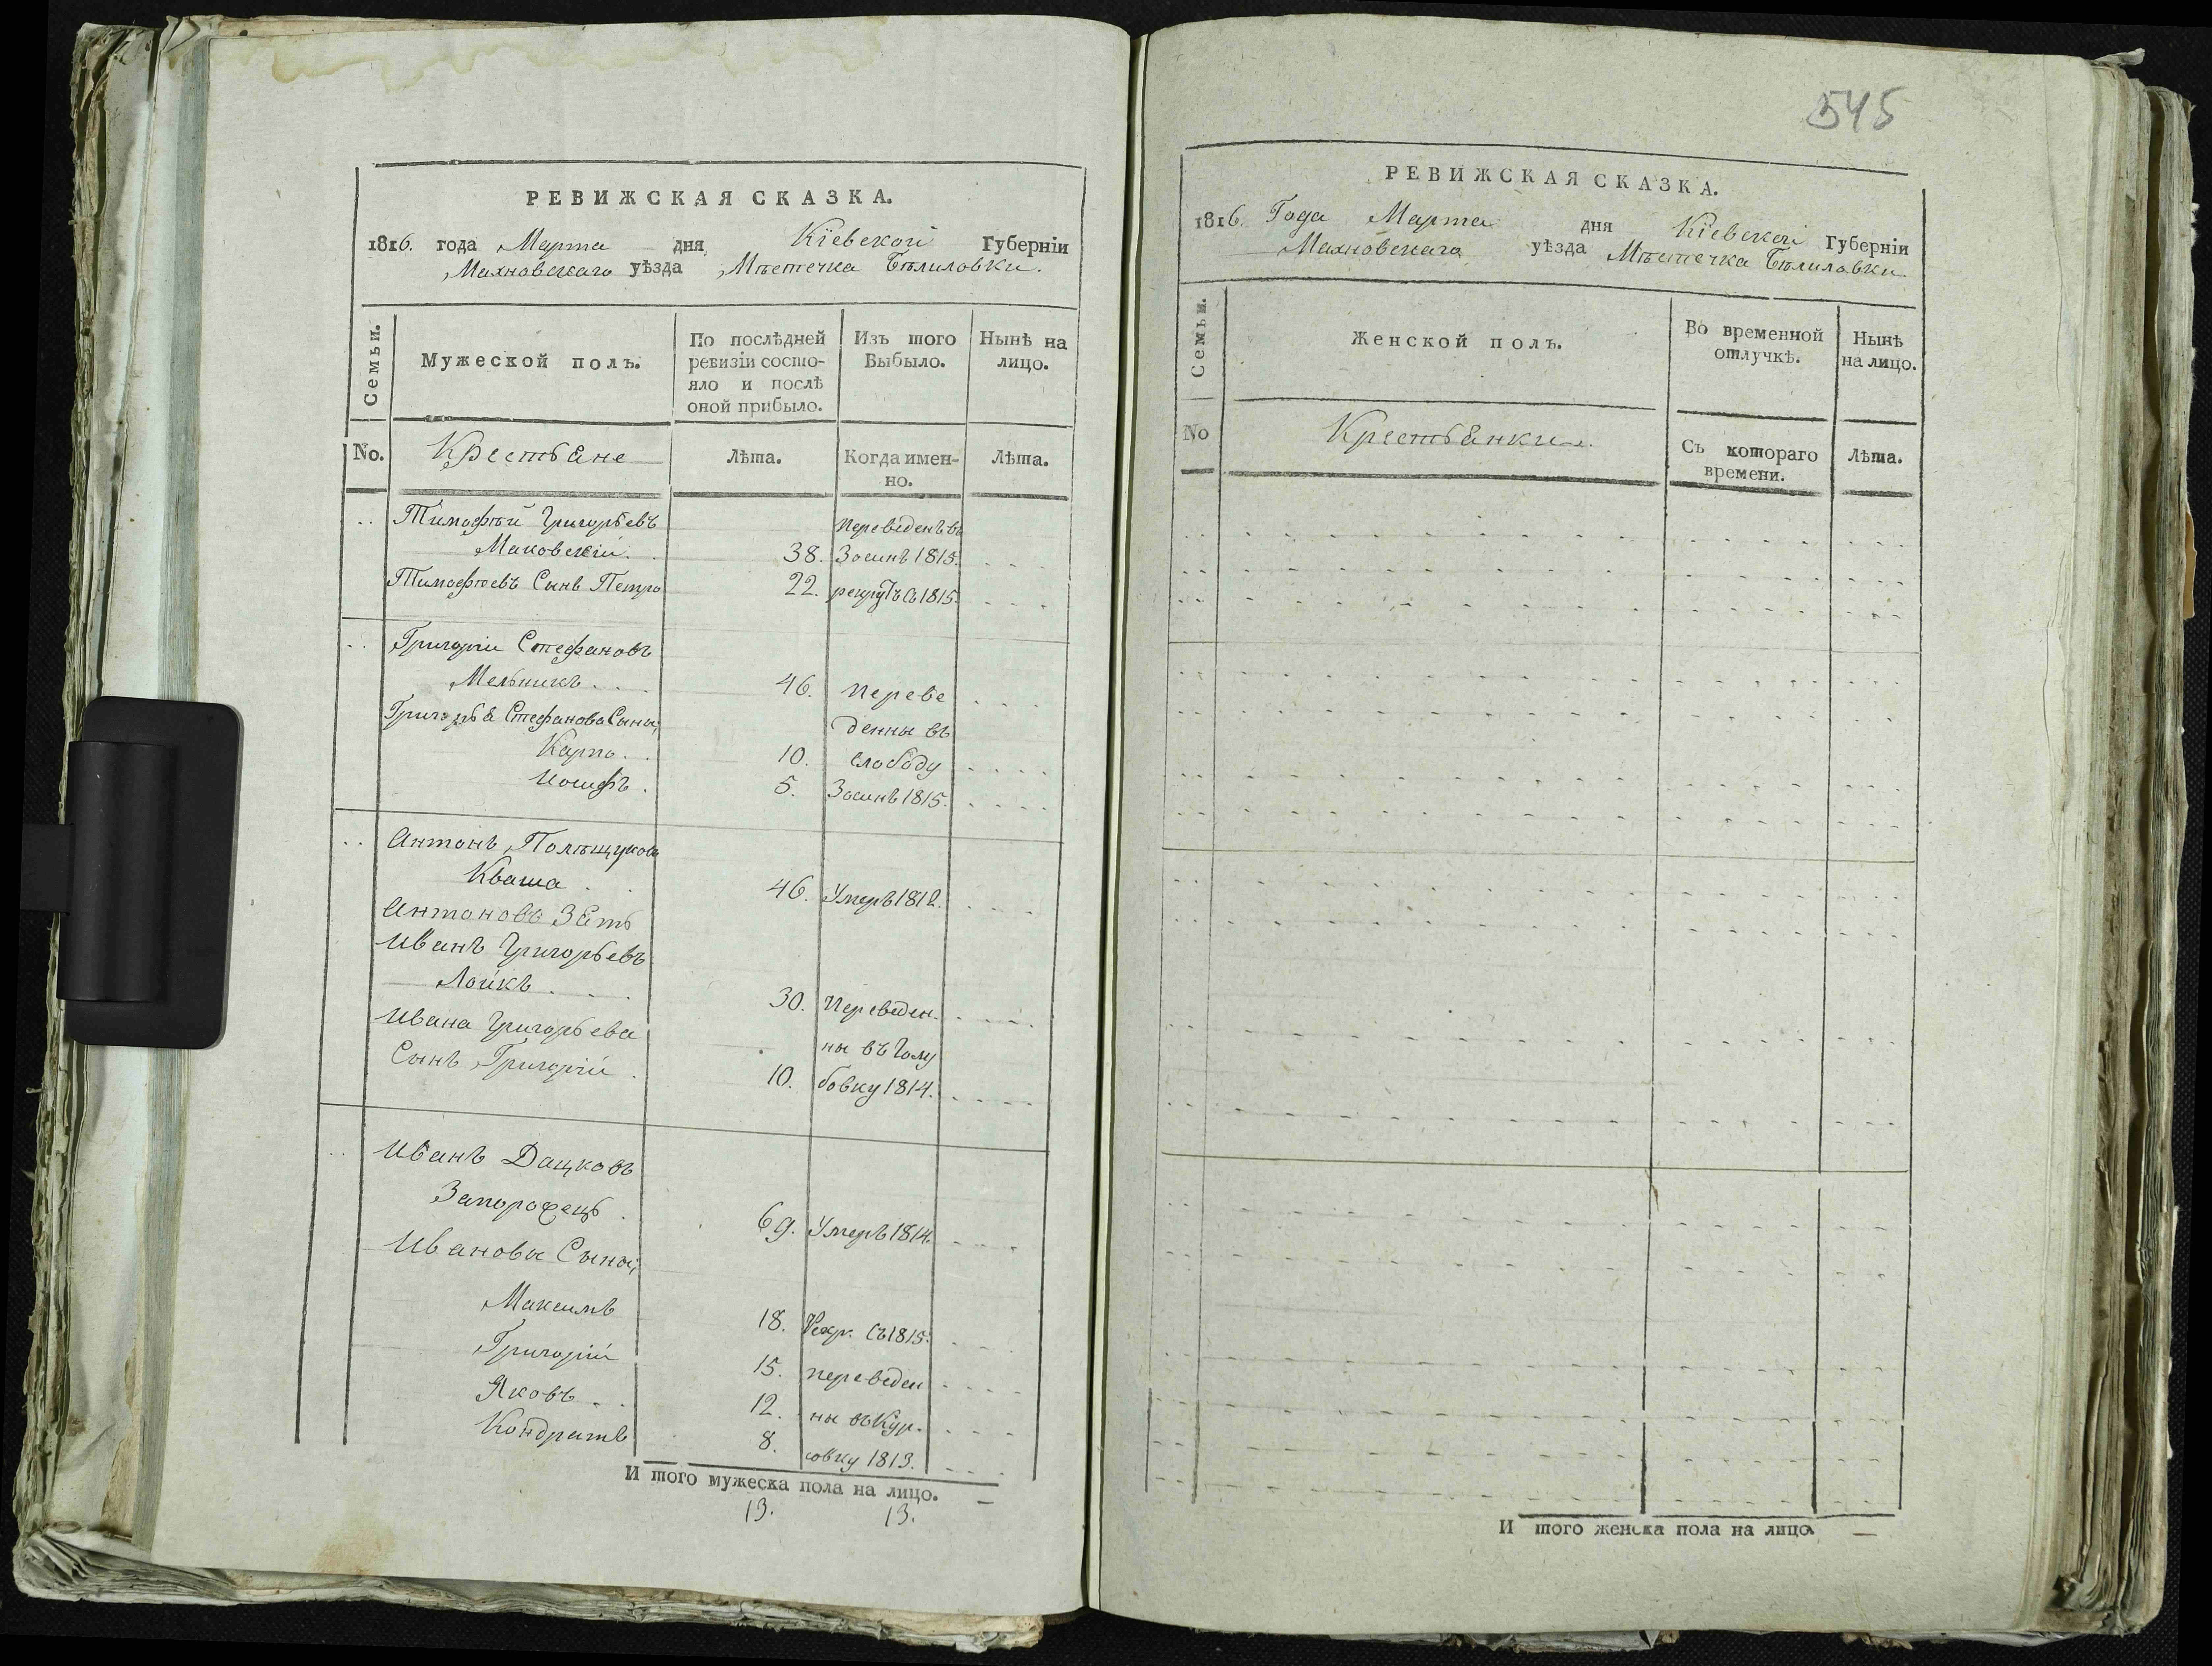 РЕВИЖСКАЯ СКАЗКА.
1816. года Марта дня Кіевской Губерніи
Махновскаго уѣзда Мѣстечка Бѣлиловки.
Семьи.
Мужеской полъ.
По послѣдней ревизіи состо-
яло и послѣ
оной прибыло.
Изъ того
Выбыло.
Нынѣ на
лицо.
No.
Крестьяне
Лѣта.
Когда имен-
но.
Лѣта.
Тимофѣй Григорьевъ
Переведенъ въ
Маковскій. 38. Зосинъ 1815.
Тимофѣевъ Сынъ Петро 22. рекрутъ съ 1815.
Григорій Стефановъ
Мельникъ 46. Переве
Григорья Стефанова Сыны,
денны въ
Карпо 10. Слободу
Иосифъ 5. Зосинъ 1815.
Антонъ Полѣщуковъ
Кваша 46. Умеръ 1812.
Антоновъ Зять
Иванъ Григорьевъ
Лойкъ 30. Переведен-
Ивана Григорьева
ны въ Голу
Сынъ Григорій 10. бовку 1814.
Иванъ Дацковъ
Запорожецъ 69. Умеръ 1814.
Иванова Сыны,
Максимъ 18. Рекр. съ 1815.
Григорій 15. переведен
Яковъ 12. ны въ Кур-
Кондратъ 8. совку 1813.
И того мужеска пола на лицо. —
13. 13.
545
РЕВИЖСКАЯ СКАЗКА.
1816. Года Марта дня Кіевской Губерніи
Махновскаго уѣзда Мѣстечка Бѣлиловки
Семьи.
Женской полъ.
Во временной
отлучкѣ.
Нынѣ
на лицо.
No
Крестьянки.
Съ котораго
времени.
Лѣта.
И того женска пола на лицо —